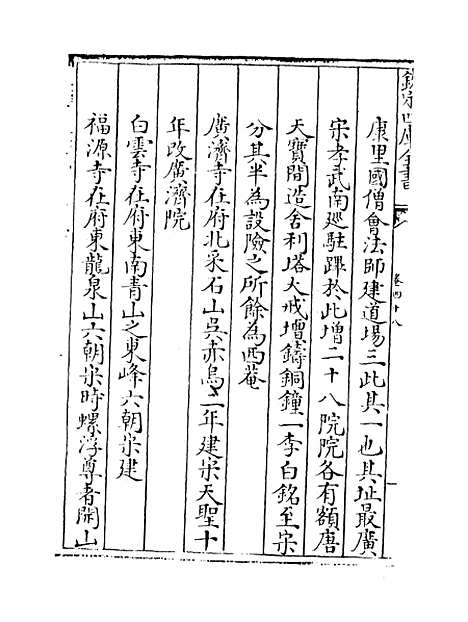 欽定四庫全書
卷四十八
康里國僧會法師建道場三此其一也其址最廣
宋孝武南廵駐蹕於此増二十八院院各有額唐
天寶間造舍利塔大戒壇鑄銅鐘一李白銘至宋
分其半為設險之所餘為西菴
廣濟寺在府北采石山吳赤烏二年建宋天聖十
年改廣濟院
白雲寺在府東南青山之東峰六朝宋建
福源寺在府東龍泉山六朝宋時螺浮尊者開山